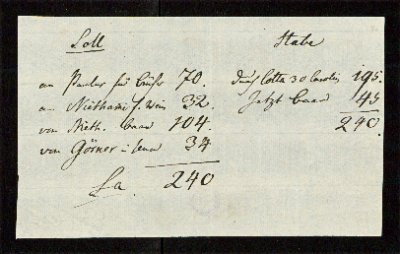 Soll
an Pauker für Bücher 70.
an Niethamr f. Wein 32.
von Nieth. baar 104.
von Görner u 34
Sa. 240
Habe
durch Cotta 30 Carolin 195.
Jetzt baar 45
240.